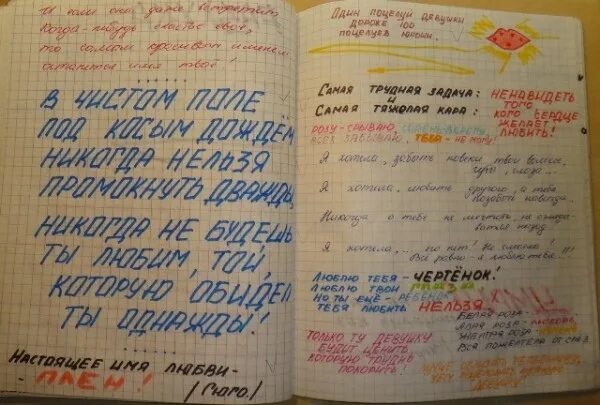 И если она, даже встретит
Когда-нибудь счастье своё,
то самым красивым именем
останется имя твоё!
В ЧИСТОМ ПОЛЕ
ПОД КОСЫМ ДОЖДЁМ
НИКОГДА НЕЛЬЗЯ
ПРОМОКНУТЬ ДВАЖДЫ,
НИКОГДА НЕ БУДЕШЬ
ТЫ ЛЮБИМ, ТОЙ,
КОТОРУЮ ОБИДЕЛ
ТЫ ОДНАЖДЫ!
НАСТОЯЩЕЕ ИМЯ ЛЮБВИ-
- ПЛЕН!
/Гюго./
ОДИН ПОЦЕЛУЙ ДЕВУШКИ
ДОРОЖЕ 100
ПОЦЕЛУЕВ ЮРОНИ.
САМАЯ ТРУДНАЯ ЗАДАЧА:
И
САМАЯ ТЯЖОЛАЯ КАРА:
НЕНАВИДЕТЬ
ТОГО
КОГО СЕРДЦЕ
ЖЕЛАЕТ
ЛЮБИТЬ!
РОЗУ - СРЫВАЮ,
ВСЕХ ЗАБЫВАЮ, ТЕБЯ - НЕ МОГУ!
Я хотела, забыть навеки твои волосы,
губы, глаза...
Я хотела, любить другого, а тебя
позабыть навсегда...
Никогда о тебе не мечтать, не
назад
Я хотела, ... но нет! Не смогла!
Всё равно - я люблю тебя...
ЛЮБЛЮ ТЕБЯ - ЧЕРТЁНОК!
ЛЮБЛЮ ТВОИ ГЛАЗА
НО ТЫ ЕЩЁ - РЕБЁНОК
ТЕБЯ ЛЮБИТЬ НЕЛЬЗЯ
БЕЛАЯ РОЗА -
АЛАЯ РОЗА - ЛЮБОВЬ
ЖЕЛТАЯ РОЗА -
ВСЯ ПОЖЕЛТЕЛА ОТ СЛЁЗ.
ТОЛЬКО ТУ ДЕВУШКУ
БУДУТ ЦЕНИТЬ
КОТОРУЮ ТРУДНО
ПОКОРИТЬ!